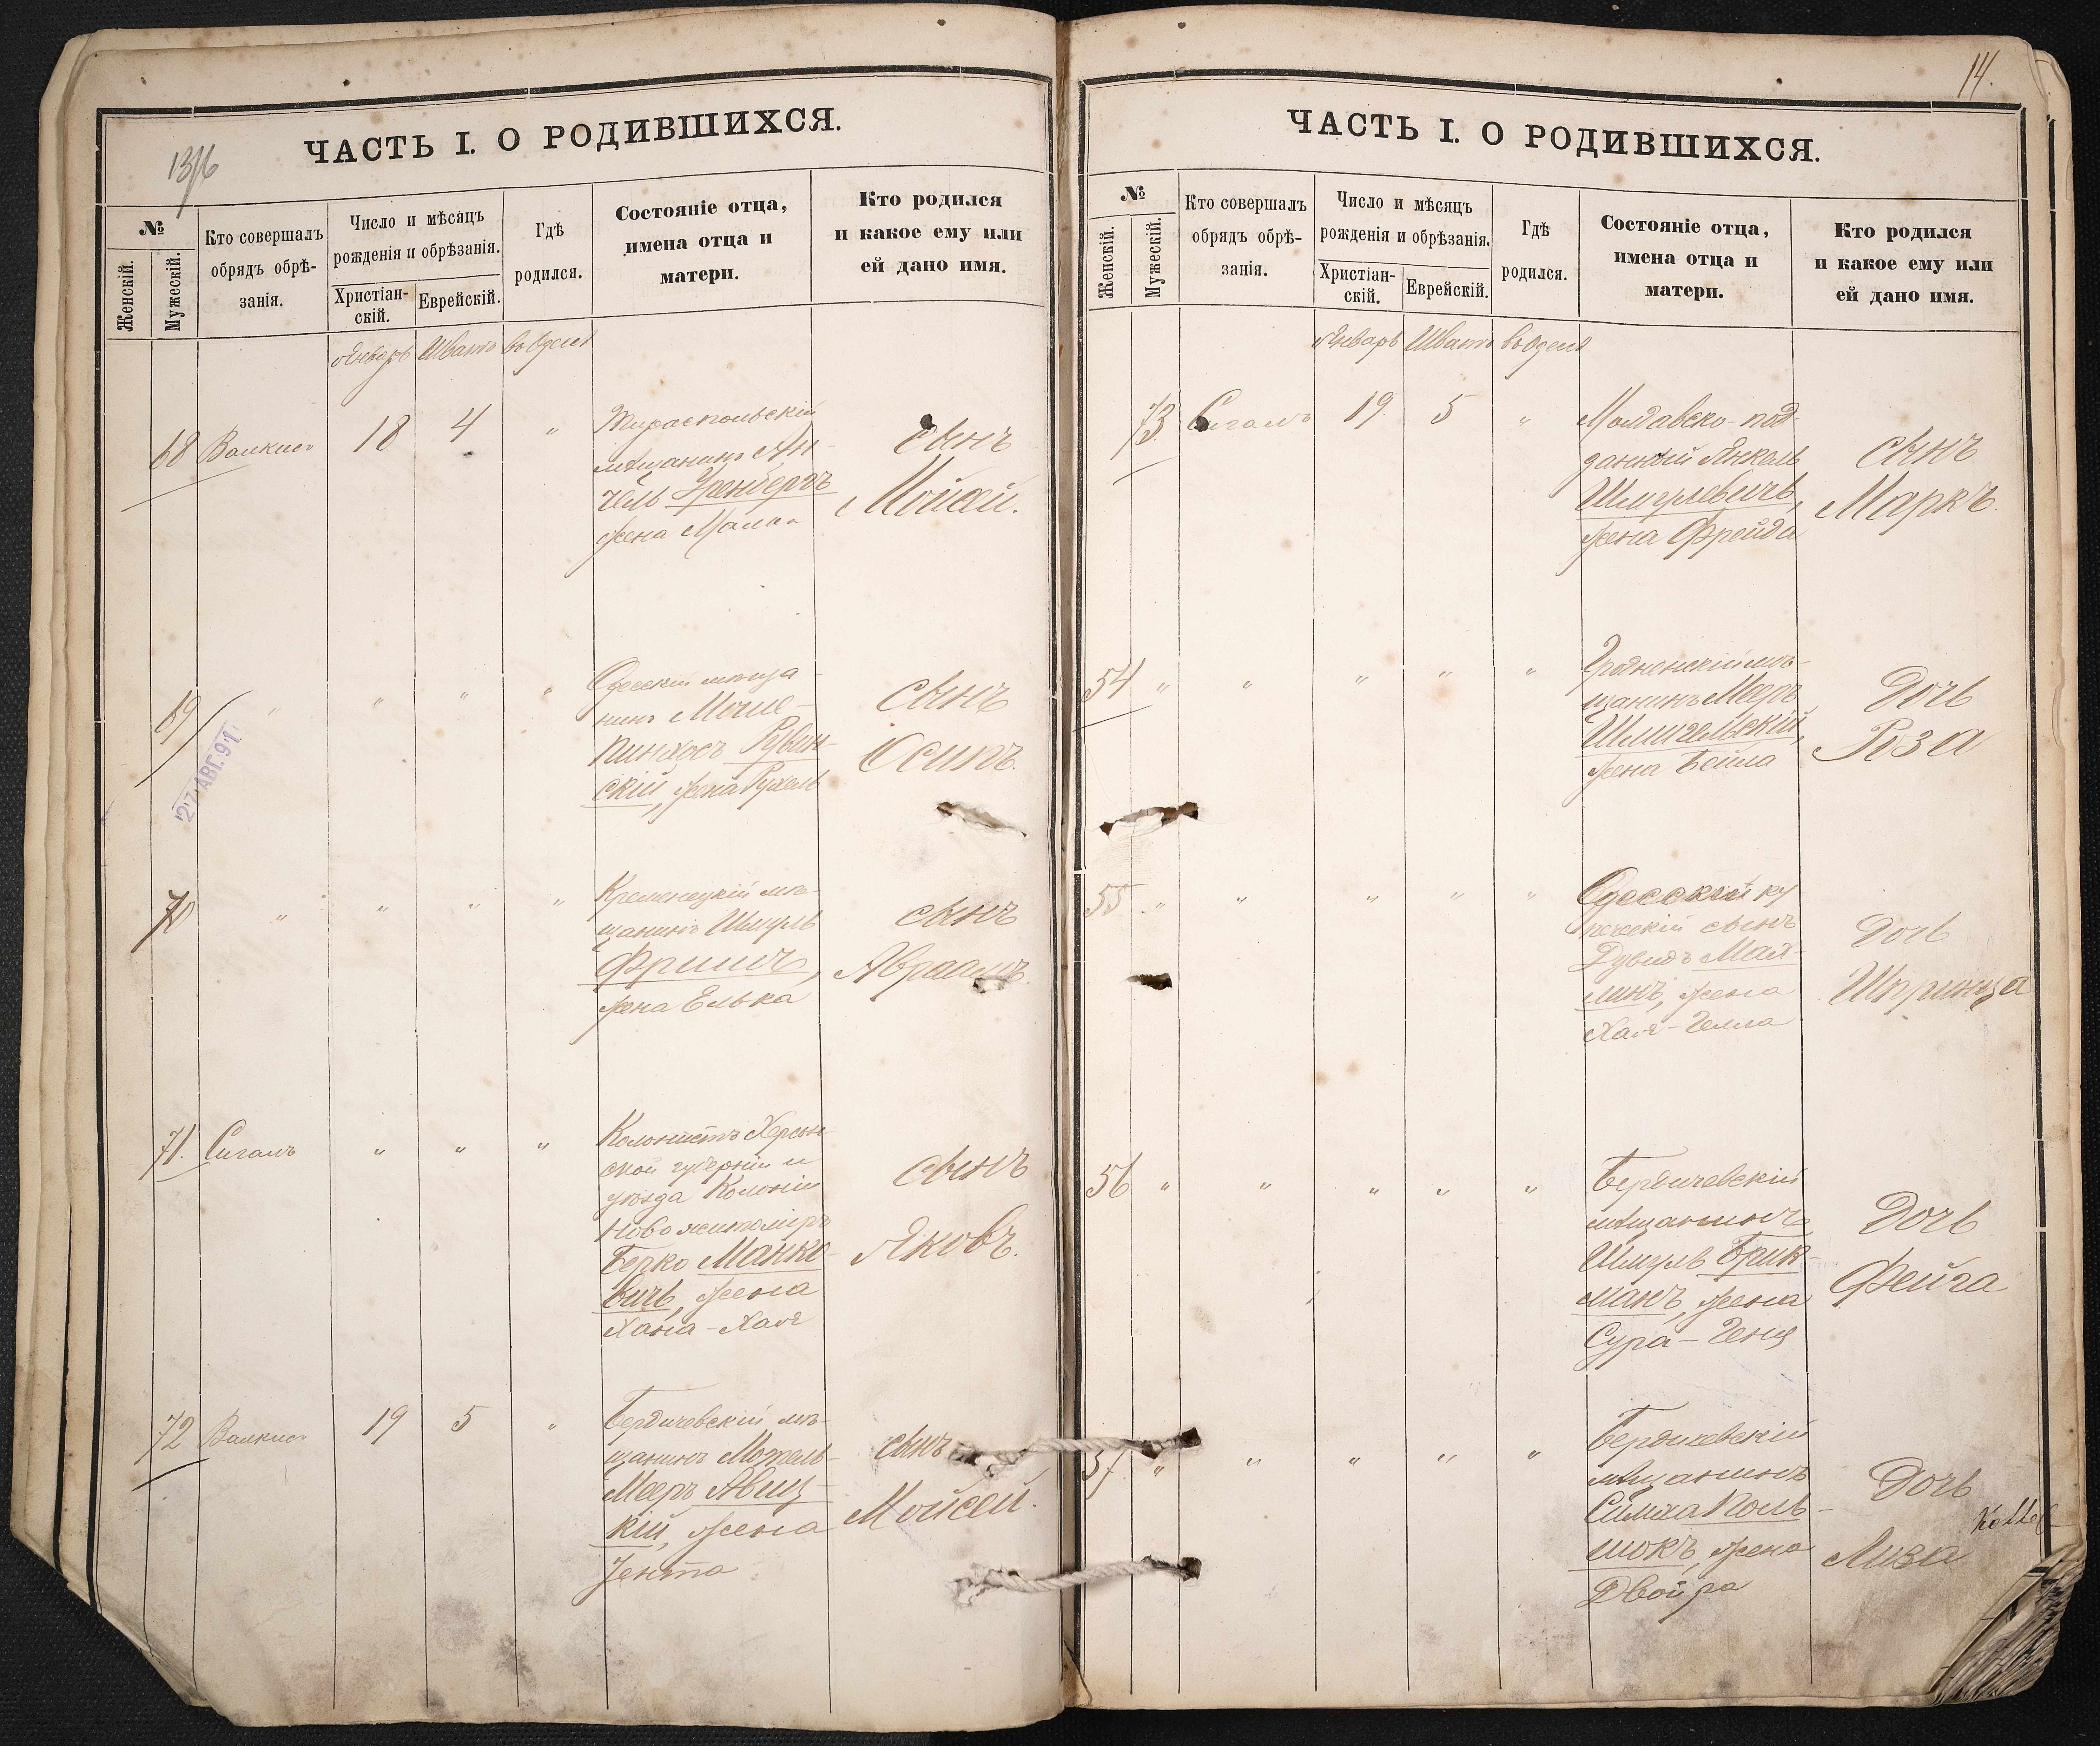 13/6
ЧАСТЬ I. О РОДИВШИХСЯ.
№
Женскій.
Мужескій.
Кто совершалъ
обрядъ обрѣ-
занія.
Число и мѣсяцъ
рожденія и обрѣзанія.
Христіан-
скій.
Еврейскій.
Гдѣ
родился.
Состояніе отца,
имена отца и
матери.
Кто родился
и какое ему или
ей дано имя.
Январь Шватъ въ Одессѣ
68 18 4 "
Тираспольскій
мѣщанинъ Ан-
чель Гренбергъ
жена Малка
сынъ
Мойсей.
69 " " " "
27 АВГ. 91
Одесскій мѣща-
нинъ Мошe-
Пинхосъ Рувин-
скій, жена Рухель
сынъ
Осипъ.
70 " " " "
Кременецкій мѣ-
щанинъ Шмуль
Фришъ,
жена Елька
сынъ
Авраамъ
71. Сигалъ " " "
Колонистъ Херсон-
ской губерніи и
уѣзда Колоніи
Новожитоміръ
Берко Манко-
вичъ, жена
Хана-Хая
сынъ
Яковъ.
72 19 5 "
Бердичевскій мѣ-
щанинъ
Мееръ Авиц-
кій, жена
Ента
сынъ
Мойсей.
14.
ЧАСТЬ I. О РОДИВШИХСЯ.
№
Женскій.
Мужескій.
Кто совершалъ
обрядъ обрѣ-
занія.
Число и мѣсяцъ
рожденія и обрѣзанія.
Христіан-
скій.
Еврейскій.
Гдѣ
родился.
Состояніе отца,
имена отца и
матери.
Кто родился
и какое ему или
ей дано имя.
Январь Шватъ въ Одессѣ
73 Сигалъ 19. 5 "
Молдавско-под-
данный Янкель
Шмулевичъ,
жена Фрейда
сынъ
Маркъ.
54 " " " " "
Гродненскій мѣ-
щанинъ Мееръ
Шмигельскій,
жена Бейла
Дочь
Роза
55 " " " " "
Одесскій ку-
печескій сынъ
Дувидъ Май-
линъ, жена
Хая-
Дочь
Шпринца
56 " " " " "
Бердичевскій
мѣщанинъ
Шмуль Брик-
манъ, жена
Сура-Геня
Дочь
Фейга
57 " " " " "
Бердичевскій
мѣщанинъ
Симха Коль-
шокъ, жена
Двойра
Дочь
Лиза